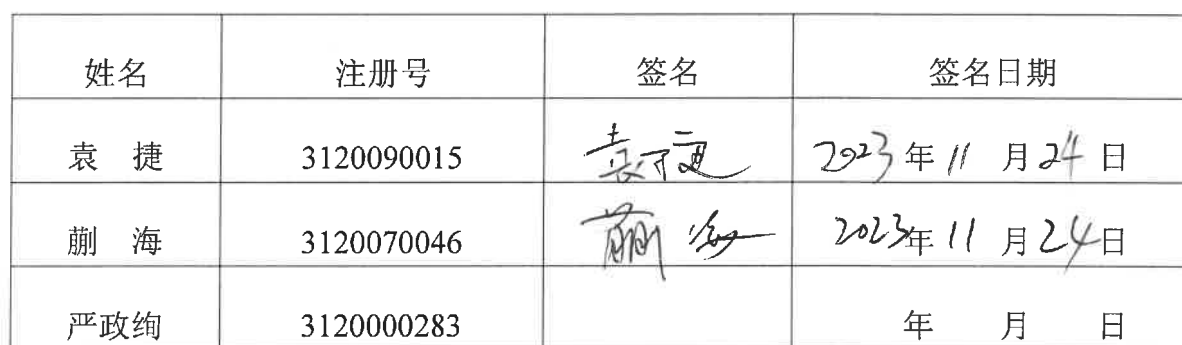 姓名 注册号 签名 签名日期
袁 捷 3120090015 袁捷 2023年11月24日
蒯 海 3120070046 蒯海 2023年11月24日
严政绚 3120000283 年 月 日